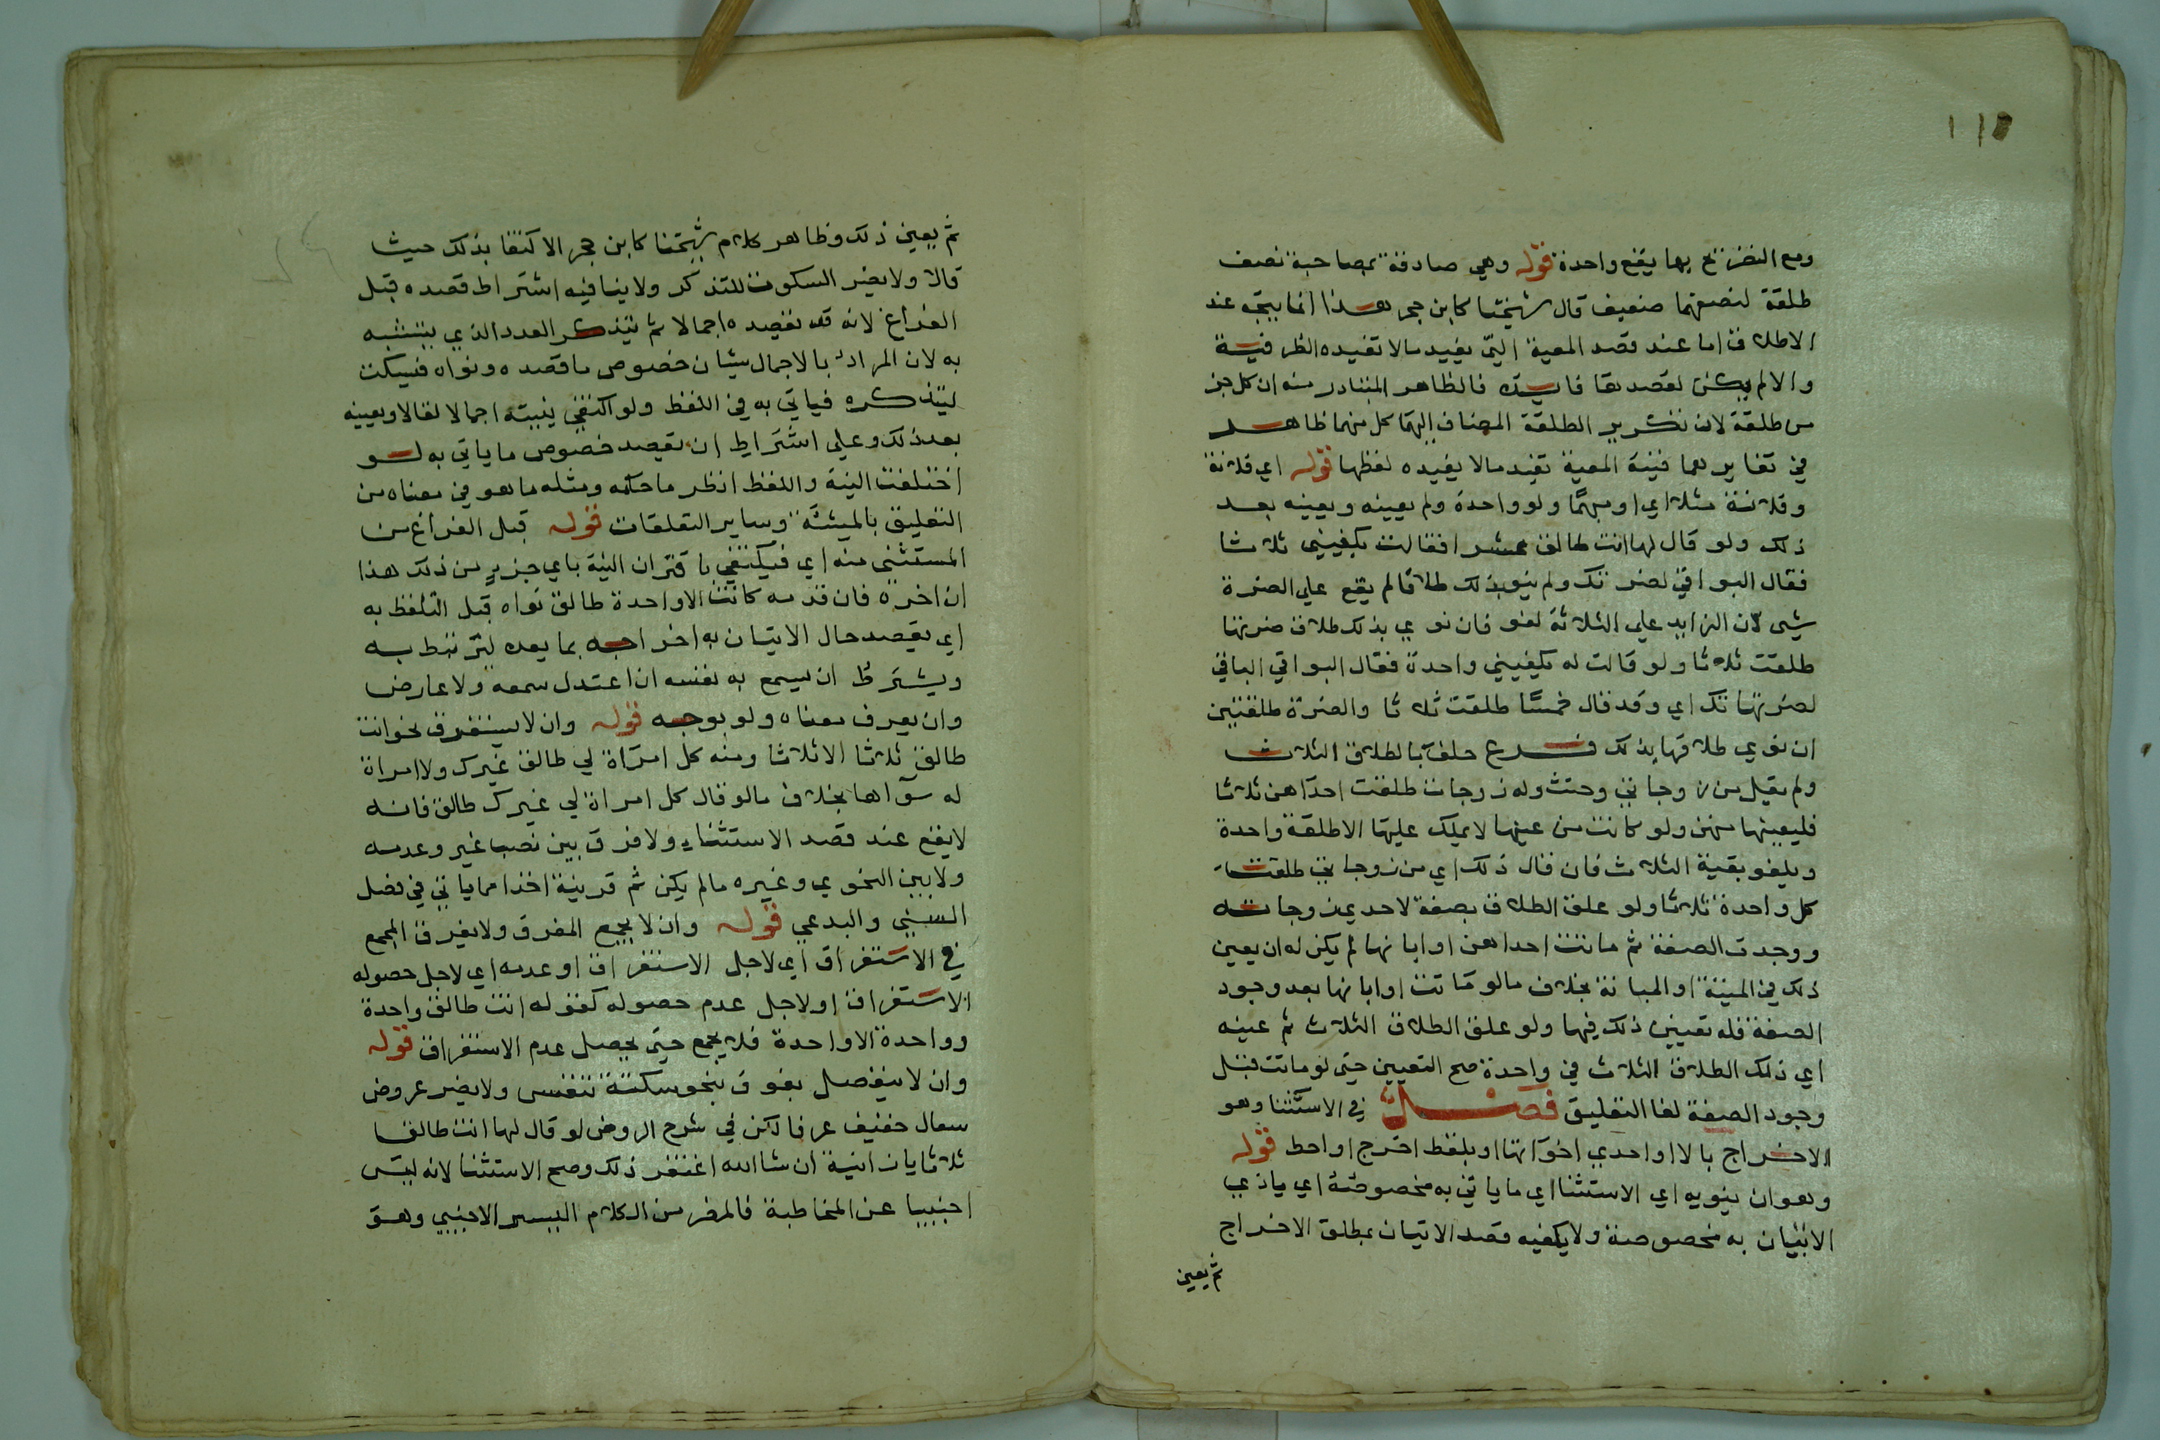 ١١٥
ومع النصريح بها يقع واحدة قوله وهي صادقة بمصاحبة نصف
طلقة لنصفهما ضعيف قال شيخنا كابن حجر هذا انما يتجه عند
الاطلاق اما عند قصد المعية التي يفيد مالا تفيده الظرفية
والا لم يكن لقصدها فايدة فالظاهر المتبادر منه ان كل جز
من طلقة لان تكرير الطلقة المضاف اليها كل منهما ظاهر
في تغايرهما فنية المعية تفيد مالا يفيده لفظها قوله اي فلانة
وفلانة مثلا اي او مبهما ولو واحدة ولم يعينه ويعينه بعد
ذلك ولو قال لها انت طالق عشرا فقالت يكفيني ثلاثا
فقال البواقي لضرتك ولم ينو بذلك طلاقا لم يقع علي الضرة
شي لان الزايد علي الثلاثة لغو فان نوي بذلك طلاق ضرتها
طلقت ثلاثا ولو قالت له يكفيني واحدة فقال البواقي الباقي
لضرتها تك اي وقد قال خمسا طلقت ثلاثا والضرة طلقتين
ان نوي طلاقها بذلك فرع حلف بالطلاق الثلاث
ولم يقل من زوجاتي وحنث وله زوجات طلقت احداهن ثلاثا
فليعينها منهن ولو كانت من عينها لا يملك عليها الا طلقة واحدة
ويلغو بقية الثلاث فان قال ذلك اي من زوجاتي طلقت
كل واحدة ثلاثا ولو علق الطلاق بصفة لاحدي زوجاته
ووجدت الصفة ثم ماتت احداهن او ابانها لم يكن له ان يعين
ذلك في الميتة او المبانة بخلاف مالو ماتت او ابانها بعد وجود
الصفة فله تعيين ذلك فيها ولو علق الطلاق الثلاث ثم عينه
اي ذلك الطلاق الثلاث في واحدة صح التعيين حتى لو ماتت قبل
وجود الصفة لغا التعليق فصل في الاستثنا وهو
الاخراج بالا او احدي اخواتها او بلفظ اخرج او احط قوله
وهو ان ينويه اي الاستثنا اي ما ياتي به مخصوصة اي ياذي
الاتيان به مخصوصة ولا يكفيه قصد الاتيان بمطلق الاخراج
ثم يعين
ثم يعين ذلك وظاهر كلام شيخنا كابن حجر الاكتفا بذلك حيث
قالا ولا يضر السكوت للتذكر ولا ينافيه اشتراط قصده قبل
الفراغ لانه قد يقصده اجمالا ثم يتذكر العدد الذي يستثنيه
به لان المراد بالاجمال شيان خصوص ما قصده ونواه فيسكت
ليتذكره فياتي به في اللفظ ولو اكتفى بنيته اجمالا لقالا ويعينه
بعد ذلك وعلي اشتراط ان يقصد خصوص ما ياتي به لو
اختلفت النية واللفظ انظر ما حكمه ومثله ما هو في معناه من
التعليق بالمشيئة وساير التعلقات قوله قبل الفراغ من
المستثنى منه اي فيكتفي باقتران النية باي جزء من ذلك هذا
ان اخره فان قدمه كانت الا واحدة طالق نواه قبل التلفظ به
اي يقصد حال الاتيان به اخراجه بما بعده ليرتبط به
ويشترط ان يسمع به نفسه ان اعتدل سمعه ولا عارض
وان يعرف معناه ولو بوجه قوله وان لا يستغرق نحو انت
طالق ثلاثا الا ثلاثا ومنه كل امراة لي طالق غيرك ولا امراة
له سواها بخلاف مالو قال كل امراة لي غيرك طالق فانه
لا يقع عند قصد الاستثناء ولا فرق بين نصب غير وعدمه
ولا بين النحوي وغيره مالم يكن ثم قرينة اخذا مما ياتي في فصل
السني والبدعي قوله وان لا يجمع المفرق ولا يفرق المجمع
في الاستغراق اي لاجل الاستغراق او عدمه اي لاجل حصوله
الاستغراق او لاجل عدم حصوله كقوله انت طالق واحدة
وواحدة الا واحدة فلا يجمع حتى يحصل عدم الاستغراق قوله
وان لا ينفصل بفوق نحو سكتة تنفس ولا يضر عروض
سعال خفيف عرفا لكن في شرح الروض لو قال لها انت طالق
ثلاثا يا زانية ان شا الله اغتفر ذلك وصح الاستثنا لانه ليس
اجنبيا عن المخاطبة فالمضر من الكلام اليسير الاجنبي وهو